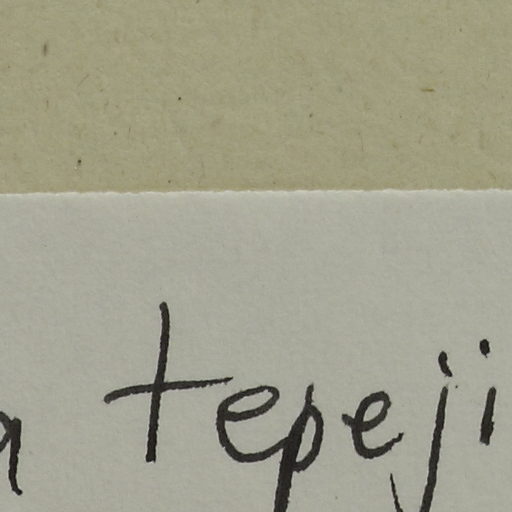 a tepeji